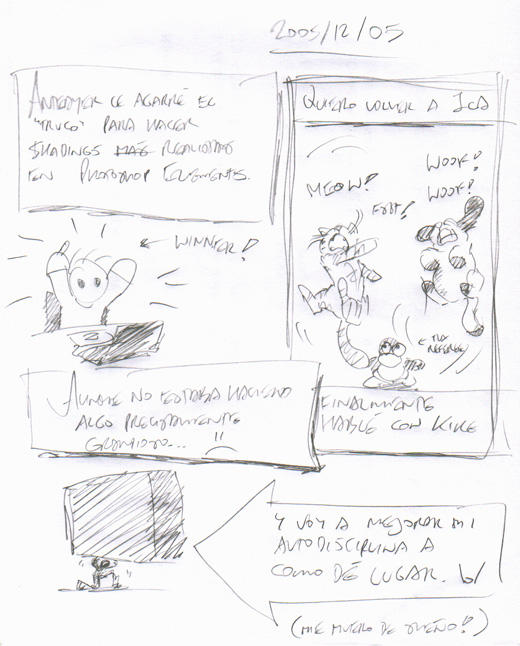 2005/12/05
ANTEAYER LE AGARRÉ EL
"TRUCO" PARA HACER
SHADINGS MÁS REALISTAS
EN PHOTOSHOP ELEMENTS.
WINNER!
QUIERO VOLVER A ICA
WOOF!
WOOF!
MEOW!
← THE
REFEREE
AUNQUE NO ESTABA HACIENDO
ALGO PRECISAMENTE
GRANDIOSO... !!
FINALMENTE
HABLÉ CON KIKE
Y VOY A MEJORAR MI
AUTODISCIPLINA A
COMO DÉ LUGAR.
(ME MUERO DE SUEÑO!)